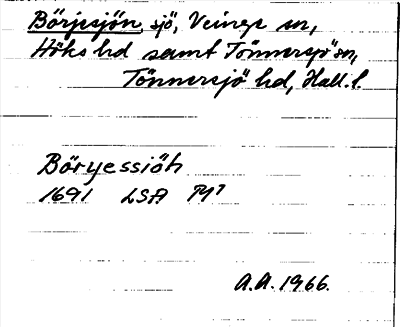 Börjesjön, sjö, Veinge sn,
Höks hd samt Tönnersjö sn,
Tönnersjö hd, Hall. l.
Böryessiöh
1691 LSA N1
A.A. 1966.